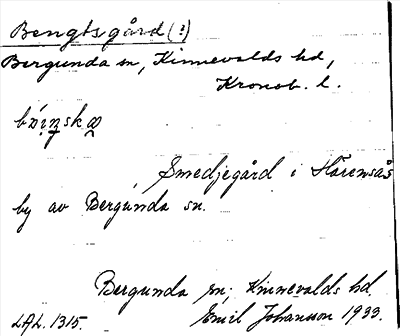 Bengtsgård (?)
Bergunda sn, Kinnevalds hd,
Kronob. l.
Smedjegård i Haremsås
by av Bergunda sn.
Bergunda sn; Kinnevalds hd.
LAL. 1315. Emil Johansson 1933.